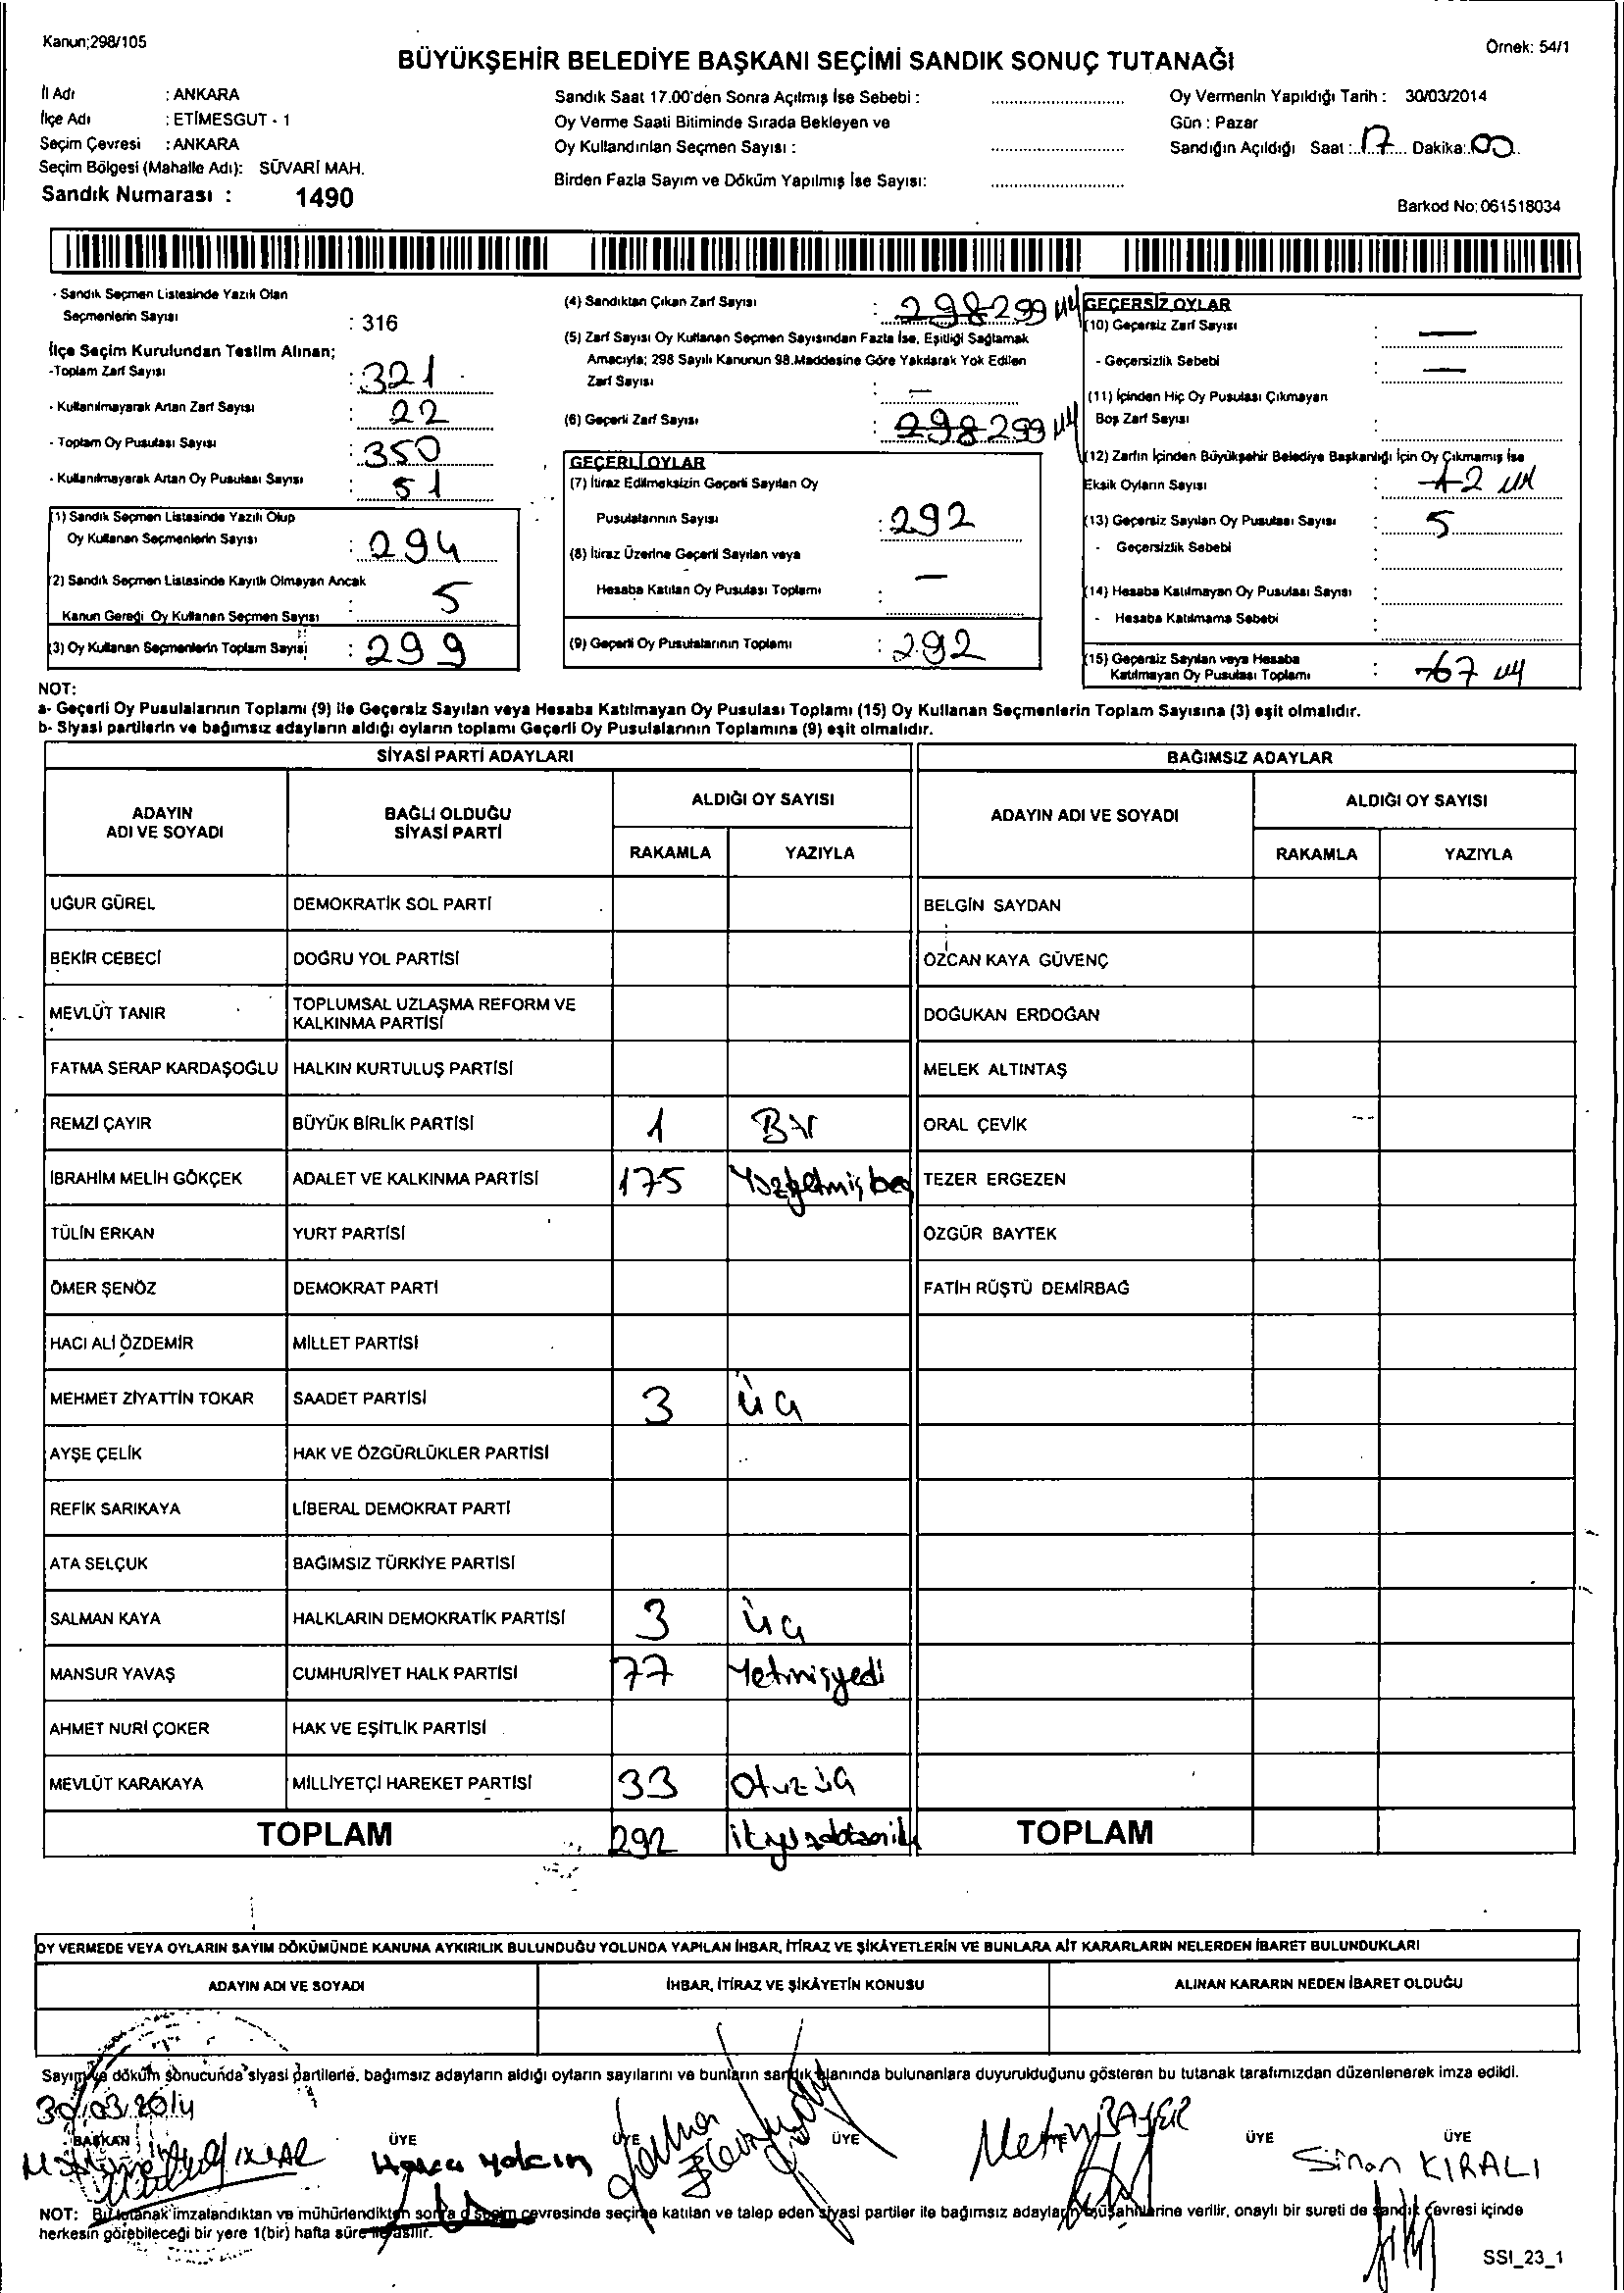 Kanun;298/105
Örnek: 54/1
BÜYÜKŞEHİR BELEDİYE BAŞKANI SEÇİMİ SANDIK SONUÇ TUTANAĞI
İl Adı : ANKARA
İlçe Adı : ETİMESGUT - 1
Seçim Çevresi : ANKARA
Seçim Bölgesi (Mahalle Adı): SÜVARİ MAH.
Sandık Numarası : 1490
Sandık Saat 17.00'den Sonra Açılmış İse Sebebi :
Oy Verme Saati Bitiminde Sırada Bekleyen ve
Oy Kullandırılan Seçmen Sayısı :
Birden Fazla Sayım ve Döküm Yapılmış İse Sayısı:
Oy Vermenin Yapıldığı Tarih : 30/03/2014
Gün : Pazar
Sandığın Açıldığı Saat : 17 Dakika: 00
Barkod No: 061518034
- Sandık Seçmen Listesinde Yazılı Olan
Seçmenlerin Sayısı : 316
İlçe Seçim Kurulundan Teslim Alınan;
-Toplam Zarf Sayısı : 321
- Kullanılmayarak Artan Zarf Sayısı : 22
- Toplam Oy Pusulası Sayısı : 350
- Kullanılmayarak Artan Oy Pusulası Sayısı : 51
(1) Sandık Seçmen Listesinde Yazılı Olup
Oy Kullanan Seçmenlerin Sayısı : 294
(2) Sandık Seçmen Listesinde Kayıtlı Olmayan Ancak
Kanun Gereği Oy Kullanan Seçmen Sayısı : 5
(3) Oy Kullanan Seçmenlerin Toplam Sayısı : 299
(4) Sandıktan Çıkan Zarf Sayısı : 298 299
(5) Zarf Sayısı Oy Kullanan Seçmen Sayısından Fazla İse, Eşitliği Sağlamak
Amacıyla; 298 Sayılı Kanunun 98.Maddesine Göre Yakılarak Yok Edilen
Zarf Sayısı : —
(6) Geçerli Zarf Sayısı : 298 299
GEÇERLİ OYLAR
(7) İtiraz Edilmeksizin Geçerli Sayılan Oy
Pusulalarının Sayısı : 292
(8) İtiraz Üzerine Geçerli Sayılan veya
Hesaba Katılan Oy Pusulası Toplamı : —
(9) Geçerli Oy Pusulalarının Toplamı : 292
GEÇERSİZ OYLAR
(10) Geçersiz Zarf Sayısı : —
- Geçersizlik Sebebi : —
(11) İçinden Hiç Oy Pusulası Çıkmayan
Boş Zarf Sayısı :
(12) Zarfın İçinden Büyükşehir Belediye Başkanlığı İçin Oy Çıkmamış İse
Eksik Oyların Sayısı : 1 2
(13) Geçersiz Sayılan Oy Pusulası Sayısı : 5
- Geçersizlik Sebebi :
(14) Hesaba Katılmayan Oy Pusulası Sayısı :
- Hesaba Katılmama Sebebi :
(15) Geçersiz Sayılan veya Hesaba
Katılmayan Oy Pusulası Toplamı : 6 7
NOT:
a- Geçerli Oy Pusulalarının Toplamı (9) ile Geçersiz Sayılan veya Hesaba Katılmayan Oy Pusulası Toplamı (15) Oy Kullanan Seçmenlerin Toplam Sayısına (3) eşit olmalıdır.
b- Siyasi partilerin ve bağımsız adayların aldığı oyların toplamı Geçerli Oy Pusulalarının Toplamına (9) eşit olmalıdır.
SİYASİ PARTİ ADAYLARI BAĞIMSIZ ADAYLAR
ADAYIN ADI VE SOYADI BAĞLI OLDUĞU SİYASİ PARTİ ALDIĞI OY SAYISI ADAYIN ADI VE SOYADI ALDIĞI OY SAYISI
RAKAMLA YAZIYLA RAKAMLA YAZIYLA
UĞUR GÜREL DEMOKRATİK SOL PARTİ BELGİN SAYDAN
BEKİR CEBECİ DOĞRU YOL PARTİSİ ÖZCAN KAYA GÜVENÇ
MEVLÜT TANIR TOPLUMSAL UZLAŞMA REFORM VE KALKINMA PARTİSİ DOĞUKAN ERDOĞAN
FATMA SERAP KARDAŞOĞLU HALKIN KURTULUŞ PARTİSİ MELEK ALTINTAŞ
REMZİ ÇAYIR BÜYÜK BİRLİK PARTİSİ 1 Bir ORAL ÇEVİK
İBRAHİM MELİH GÖKÇEK ADALET VE KALKINMA PARTİSİ 175 Yüzyetmişbeş TEZER ERGEZEN
TÜLİN ERKAN YURT PARTİSİ ÖZGÜR BAYTEK
ÖMER ŞENÖZ DEMOKRAT PARTİ FATİH RÜŞTÜ DEMİRBAĞ
HACI ALİ ÖZDEMİR MİLLET PARTİSİ
MEHMET ZİYATTİN TOKAR SAADET PARTİSİ 3 üç
AYŞE ÇELİK HAK VE ÖZGÜRLÜKLER PARTİSİ
REFİK SARIKAYA LİBERAL DEMOKRAT PARTİ
ATA SELÇUK BAĞIMSIZ TÜRKİYE PARTİSİ
SALMAN KAYA HALKLARIN DEMOKRATİK PARTİSİ 3 üç
MANSUR YAVAŞ CUMHURİYET HALK PARTİSİ 77 Yetmişyedi
AHMET NURİ ÇOKER HAK VE EŞİTLİK PARTİSİ
MEVLÜT KARAKAYA MİLLİYETÇİ HAREKET PARTİSİ 33 otuzüç
TOPLAM 292 ikiyüzdoksaniki TOPLAM
OY VERMEDE VEYA OYLARIN SAYIM DÖKÜMÜNDE KANUNA AYKIRILIK BULUNDUĞU YOLUNDA YAPILAN İHBAR, İTİRAZ VE ŞİKÂYETLERİN VE BUNLARA AİT KARARLARIN NELERDEN İBARET BULUNDUKLARI
ADAYIN ADI VE SOYADI İHBAR, İTİRAZ VE ŞİKÂYETİN KONUSU ALINAN KARARIN NEDEN İBARET OLDUĞU
Sayım ve döküm sonucunda siyasi partilerle, bağımsız adayların aldığı oyların sayılarını ve bunların sandık alanında bulunanlara duyurulduğunu gösteren bu tutanak tarafımızdan düzenlenerek imza edildi.
30.03.2014
BAŞKAN ÜYE ÜYE ÜYE ÜYE ÜYE
Yalçın Metin Sinan KIRALI
NOT: Bu tutanak imzalandıktan ve mühürlendikten sonra o seçim çevresinde seçime katılan ve talep eden siyasi partiler ile bağımsız adayların müşahitlerine verilir, onaylı bir sureti de sandık çevresi içinde
herkesin görebileceği bir yere 1(bir) hafta süre ile asılır.
SSI_23_1